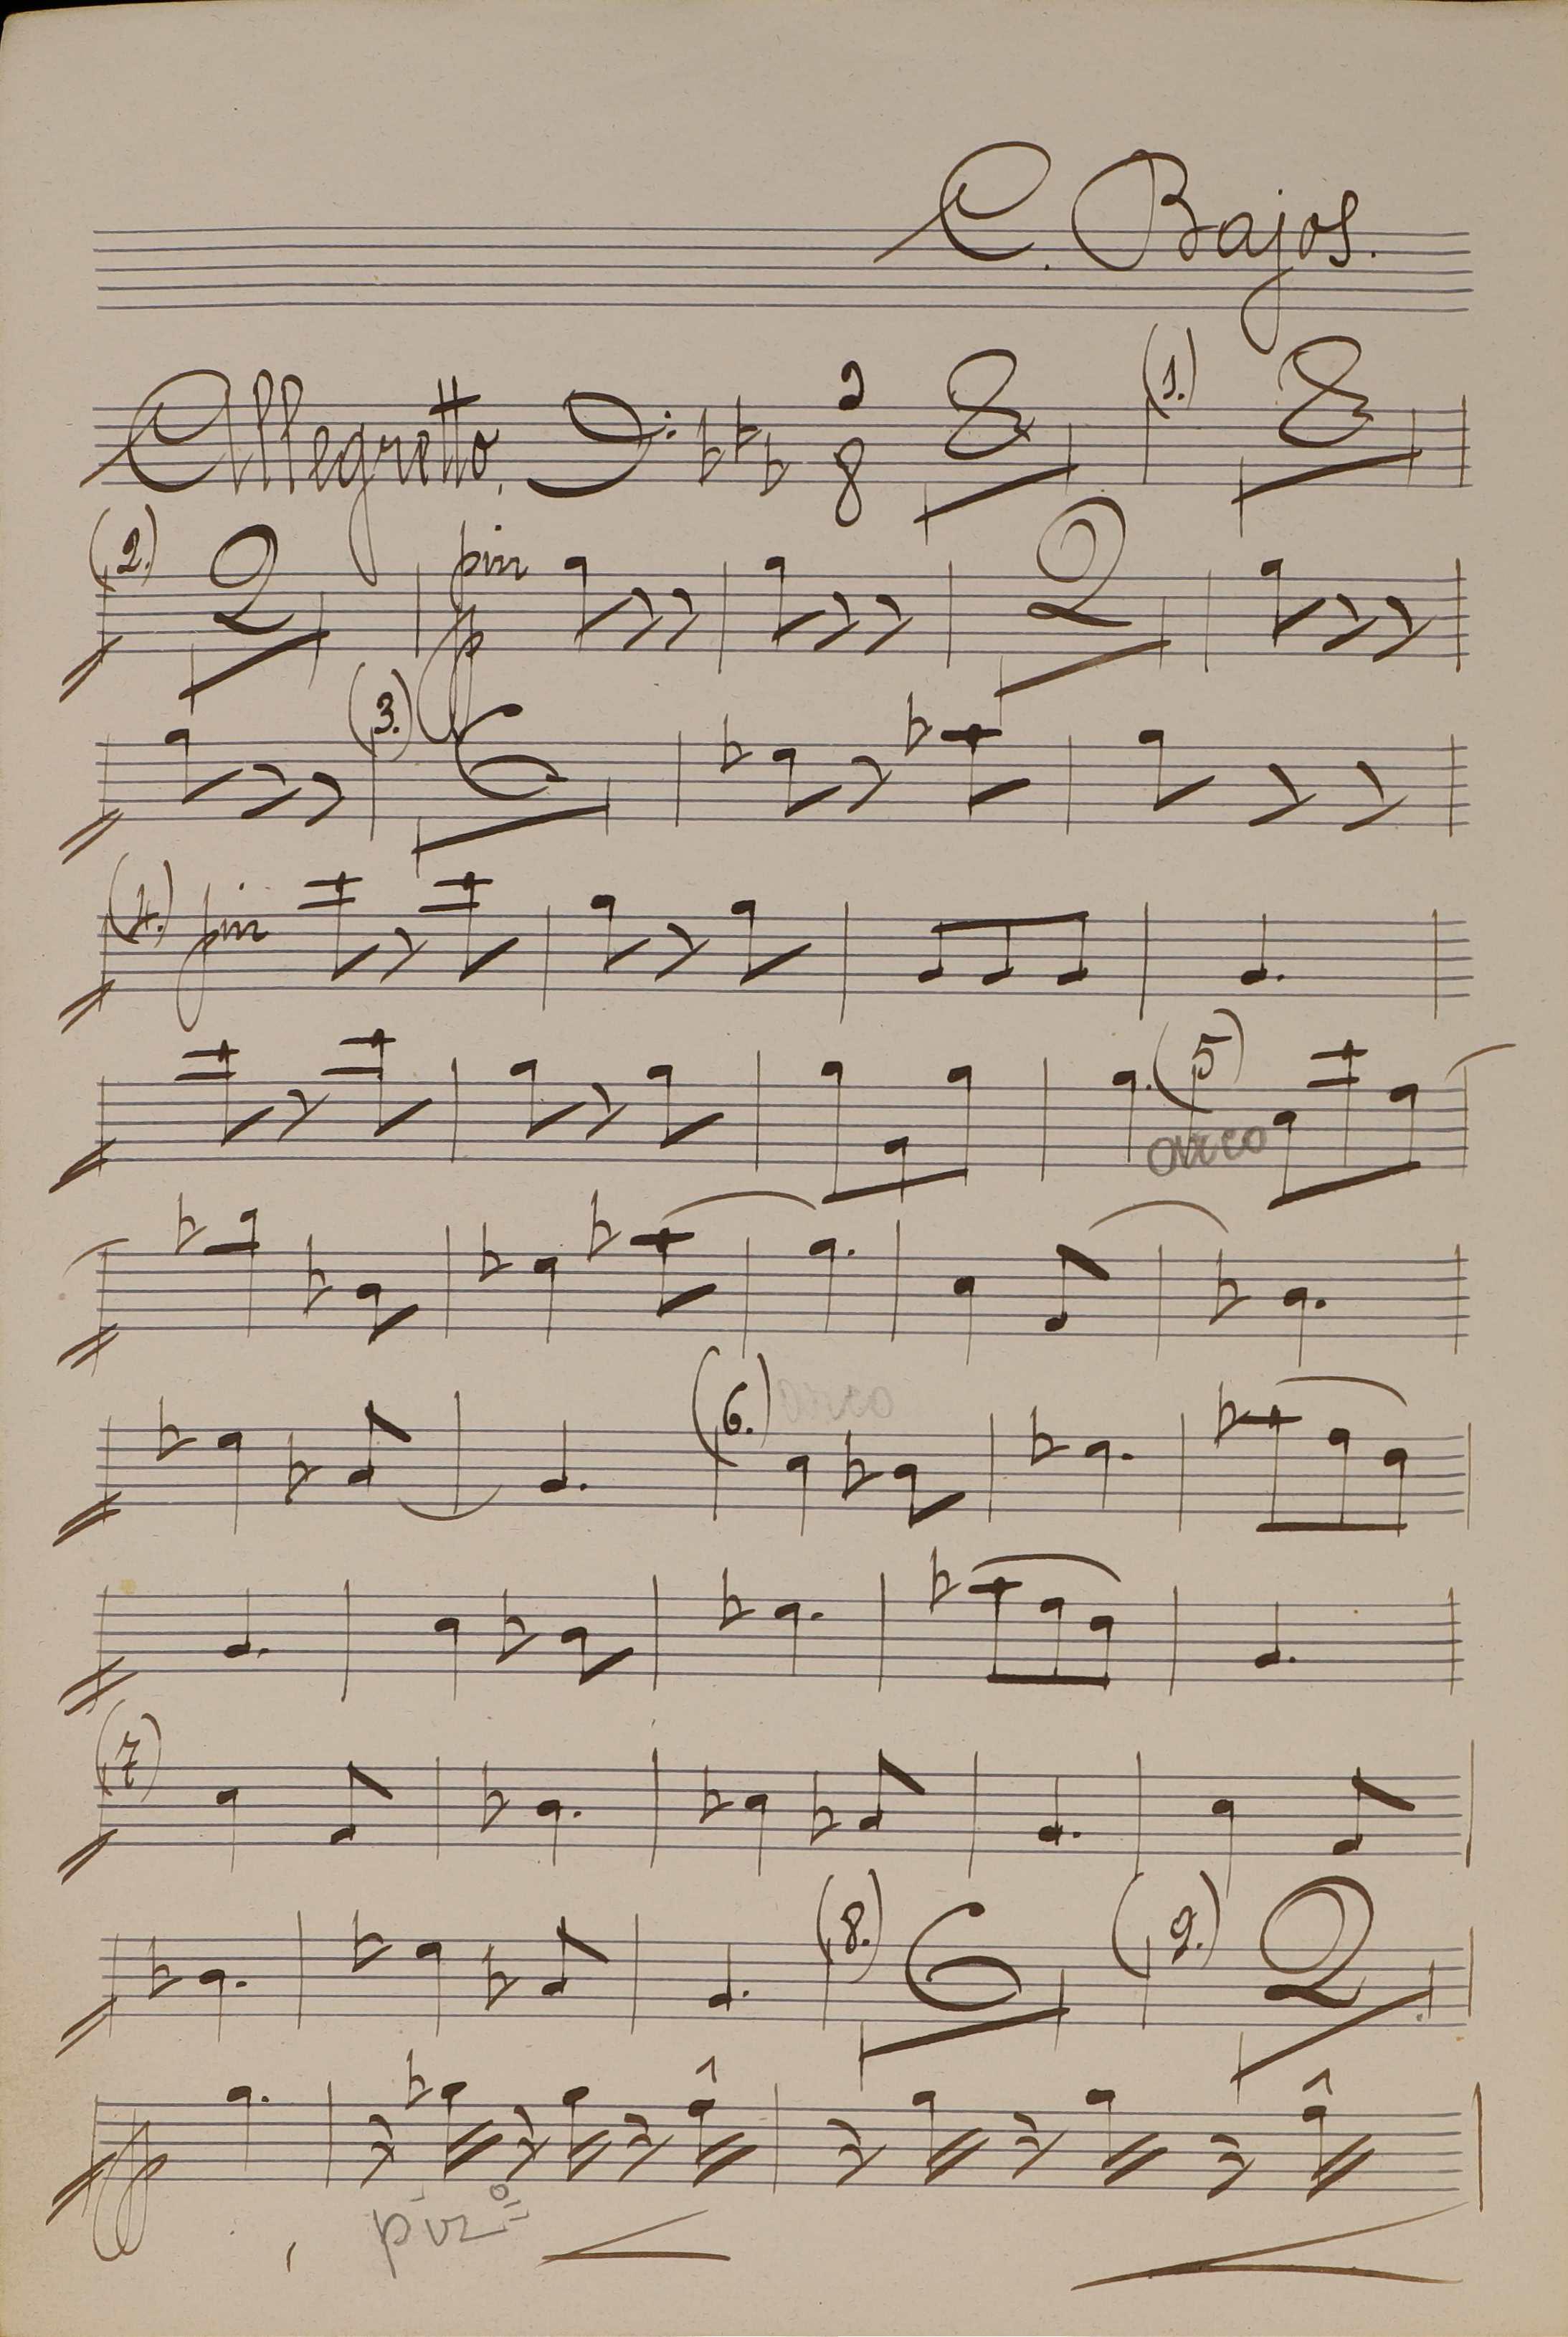 C. Bajos.
Allegretto. 3 8 8 (1.) 8
(2.) 2 pin 2
fp
(3.) 6
(4.) pin
(5)
arco
(6.) arco
(7)
(8.) 6 (9.) 2